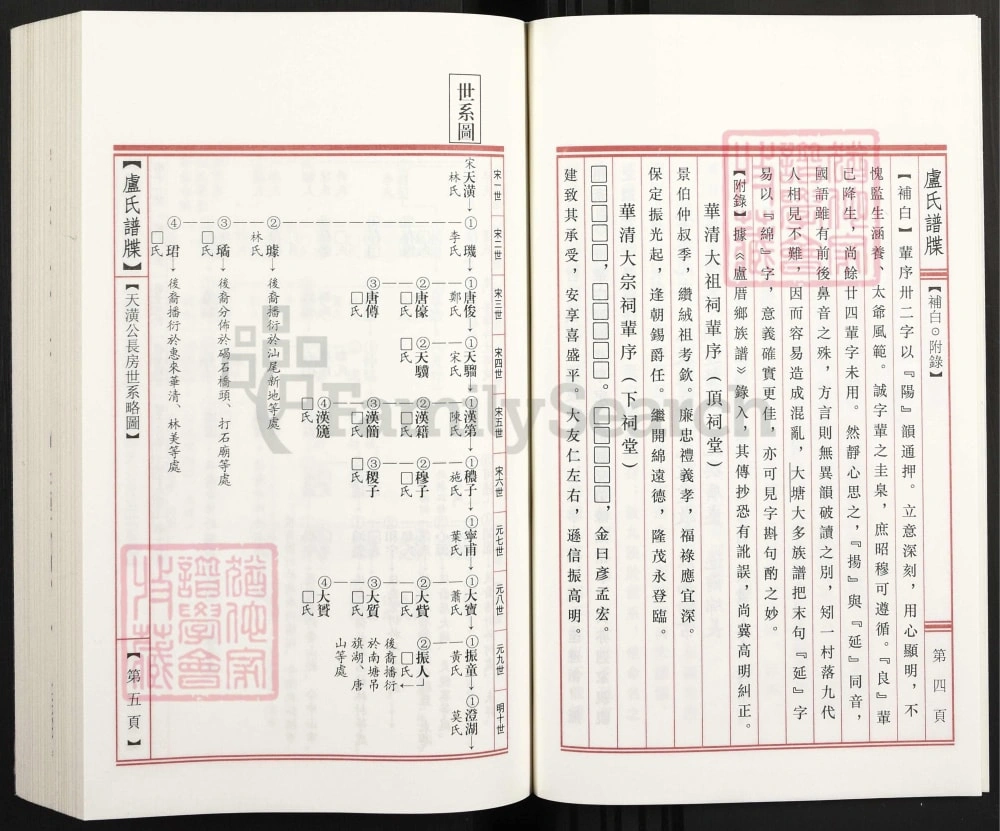 盧氏譜牒
【補白⊙附錄】
第四頁
【補白】輩序卅二字以『陽』韻通押。立意深刻，用心顯明，不
愧監生涵養、太爺風範。誠字輩之圭臬，庶昭穆可遵循。『良』輩
己降生，尚餘廿四輩字未用。然靜心思之，『揚』與『延』同音，
國語雖有前後鼻音之殊，方言則無異韻破讀之別，矧一村落九代
人相見不難，因而容易造成混亂，大塘大多族譜把末句『延』字
易以『綿』字，意義確實更佳，亦可見字斟句酌之妙。
【附錄】據《盧厝鄉族譜》錄入，其傳抄恐有訛誤，尚冀高明糾正。
華清大祖祠輩序（頂祠堂）
景伯仲叔季，纘絨祖考欽。廉忠禮義孝，福祿應宜深。
保定振光起，逢朝錫爵任。繼開綿遠德，隆茂永登臨。
華清大宗祠輩序（下祠堂）
□□□□□，□□□□□。□□□□□，金曰彥孟宏。
建致其承受，安享喜盛平。大友仁左右，遜信振高明。
世系圖
宋一世
宋二世
宋三世
宋四世
宋五世
宋六世
元七世
元八世
元九世
明十世
宋天潢↓
林氏
①璣↓
李氏
①唐俊↓
鄭氏
①天驑↓
宋氏
①漢第↓
陳氏
①穠子↓
施氏
①寧甫↓
葉氏
①大寶↓
蕭氏
①振童↓
黃氏
①澄湖↓
莫氏
②唐儫
□氏
②天驥
□氏
②漢籍
□氏
②穆子
□氏
②大貲
□氏
②振人
□氏←
後裔播衍
於南塘吊
旗湖、唐
山等處
③唐傅
□氏
③漢簡
□氏
③稷子
□氏
③大質
□氏
④漢籠
□氏
④大贇
□氏
②璩↓後裔播衍於汕尾新地等處
林氏
③璚↓後裔分佈於碣石橋頭、打石廟等處
□氏
④珺↓後裔播衍於惠來華清、林美等處
□氏
【盧氏譜牒】
【天潢公長房世系略圖】
【第五頁】
FamilySearch